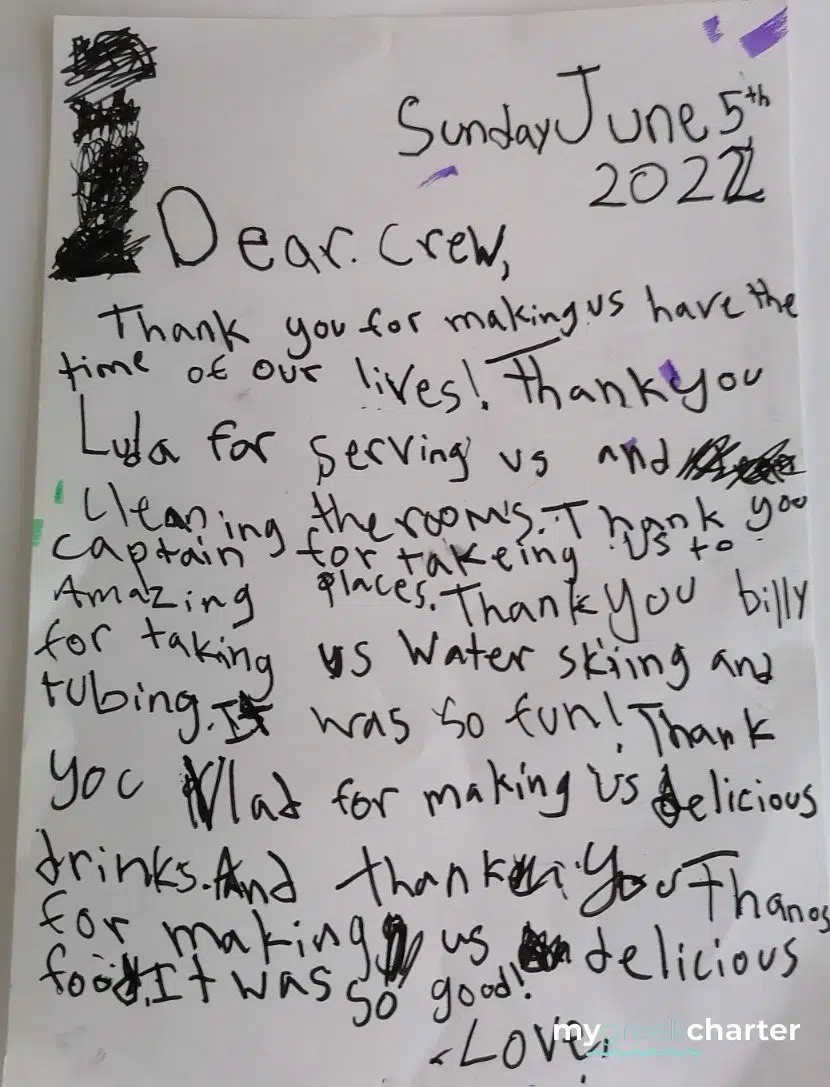 Sunday June 5th
2022
Dear. crew,
Thank you for making us have the
time of our lives! Thank you
Luda for serving us and
cleaning the rooms. Thank you
captain for takeing us to
Amazing places. Thank you billy
for taking us water skiing and
tubing. It was so fun! Thank
you Vlad for making us delicious
drinks. And thank you Thanos
for making us delicious
food. It was so good!
-Love,
mygreekcharter